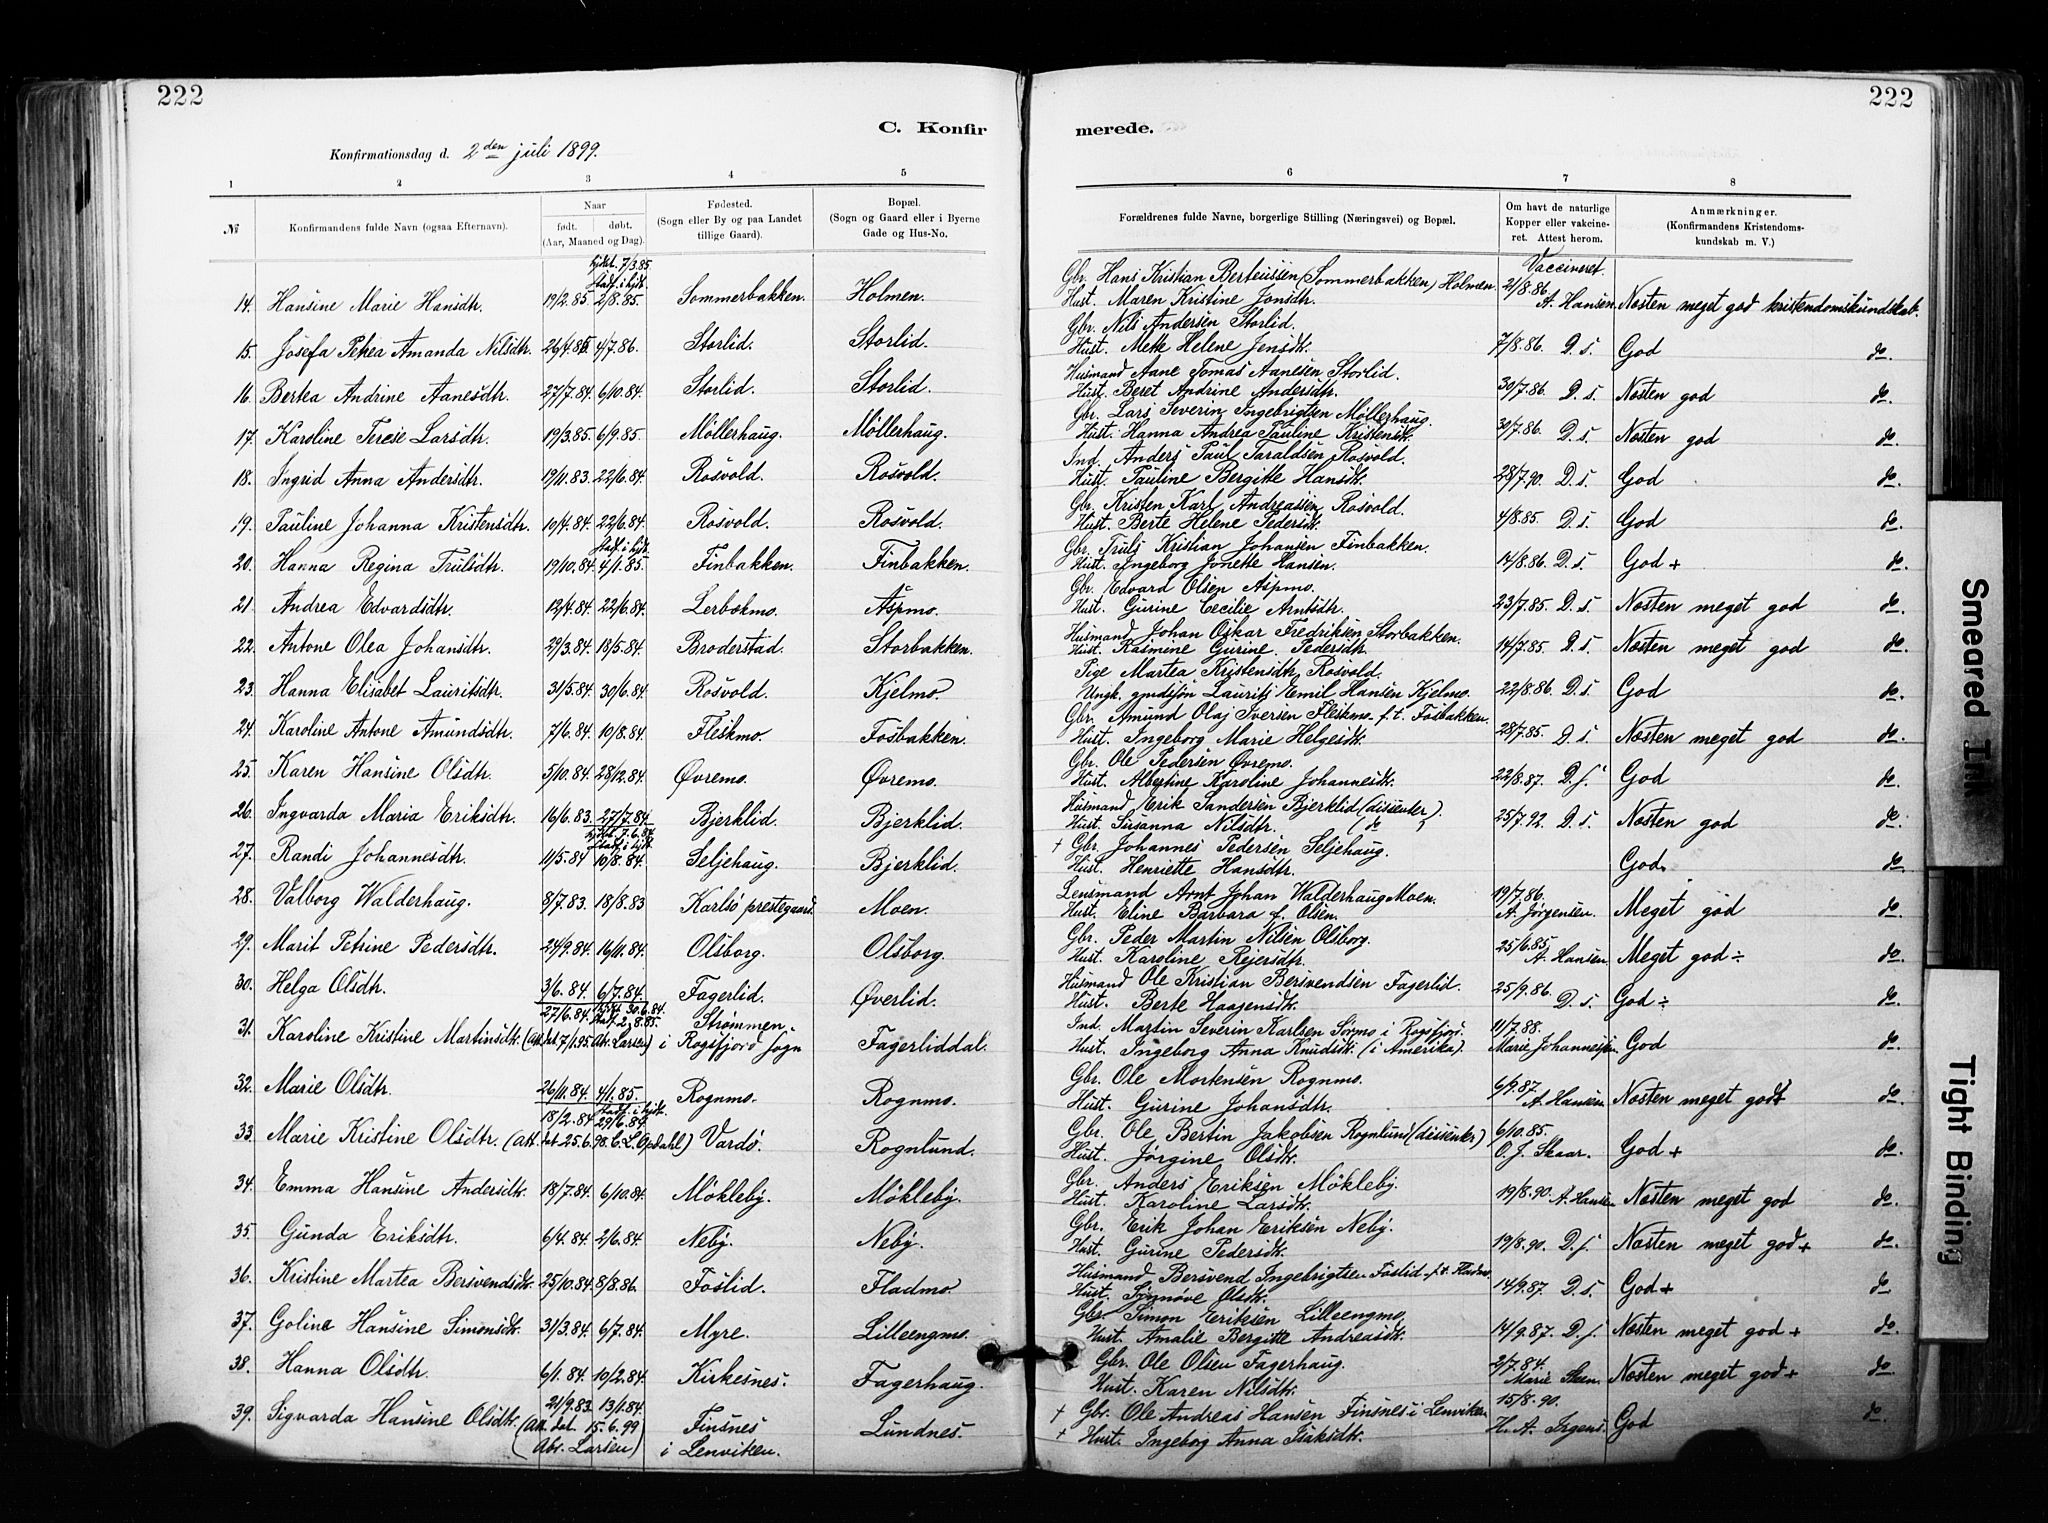 222
222
C. Konfir
merede.
Konfirmationsdag d. 2den juli 1899.
1 2 3 4 5 6 7 8
№ Konfirmandens fulde Navn (ogsaa Efternavn). Naar født. døbt. (Aar, Maaned og Dag). Fødested. (Sogn eller By og paa Landet tillige Gaard). Bopæl. (Sogn og Gaard eller i Byerne Gade og Hus-No. Forældrenes fulde Navne, borgerlige Stilling (Næringsvei) og Bopæl. Om havt de naturlige Kopper eller vakcineret. Attest herom. Anmærkninger. (Konfirmandens Kristendomskundskab m. V.)
hjdøbt. 7/3.85. Stadf. i kjrk. Gbr. Hans Kristian Berteussen (Sommerbakken) Holmen. Vaccineret.
14. Hansine Marie Hansdtr. 19/2.85 2/8.85. Sommerbakken. Holmen. Hust. Maren Kristine Jonsdtr. 21/8.86. A. Hansen Næsten meget god kristendomskundskab.
Gbr. Nils Andersen Storlid.
15. Josefa Petrea Amanda Nilsdtr. 26/4.86 4/7.86. Storlid. Storlid. Hust. Mette Helene Jensdtr. 7/8.86. D. s. God do.
Husmand Aane Tomas Aanesen Storlid.
16. Bertea Andrine Aanesdtr. 27/7.84. 6/10.84. Storlid. Storlid. Hust. Beret Andrine Andersdtr. 30/7.86. D. s. Næsten god do.
Gbr. Lars Severin Ingebrigtsen Møllerhaug.
17. Karoline Terese Larsdtr. 19/3.85. 6/9.85. Møllerhaug. Møllerhaug. Hust. Hanna Andrea Pauline Kristensdtr. 30/7.86. D. s. Næsten god do.
Ind. Anders Paul Taraldsen Rosvold.
18. Ingrid Anna Andersdtr. 19/11.83. 22/6.84. Rosvold. Rosvold. Hust. Pauline Bergitte Hansdtr. 28/7.90. D. s. God do.
Gbr. Kristen Karl Andreassen Rosvold.
19. Pauline Johanna Kristensdtr. 10/4.84. 22/6.84. Rosvold. Rosvold. Hust. Berte Helene Pedersdtr. 4/8.85. D. s. God do.
Stadf. i kjrk. Gbr. Truls Kristian Johansen Finbakken.
20. Hanna Regina Trulsdtr. 19/10.84. 4/1.85. Finbakken. Finbakken. Hust. Ingeborg Jonette Hansen. 14/8.86. D. s. God + do.
Gbr. Edvard Olsen Aspmo.
21. Andrea Edvardsdtr. 12/4.84. 22/6.84. Lerbækmo. Aspmo. Hust. Gurine Cecilie Arntsdtr. 23/7.85. D. s. Næsten meget god do.
Husmand Johan Oskar Fredriksen Storbakken.
22. Antone Olea Johansdtr. 29/3.84. 18/5.84. Broderstad. Storbakken. Hust. Rasmine Gurine Pedersdtr. 14/7.85. D. s. Næsten meget god do.
Pige Martea Kristensdtr. Rosvold.
23. Hanna Elisabet Lauritsdtr. 31/5.84. 30/6.84. Rosvold. Kjelmo. Ungk. gmdsøn Laurits Emil Hansen Kjelmo. 22/8.86. D. s. God do.
Gbr. Amund Olaj Iversen Fleskmo f. t. Fosbakken.
24. Karoline Antone Amundsdtr. 7/6.84. 10/8.84. Fleskmo. Fosbakken. Hust. Ingeborg Marie Helgesdtr. 28/7.85. D. s. Næsten meget god do.
Gbr. Ole Pedersen Øvremo.
25. Karen Hansine Olsdtr. 5/10.84. 28/12.84. Øvremo. Øvremo. Hust. Albertine Karoline Johannesdtr. 22/8.87. D. s. God do.
Husmand Erik Sandersen Bjerklid (dissenter).
26. Ingvarda Maria Eriksdtr. 16/6.83. 27/7.84. Bjerklid. Bjerklid. Hust. Susanna Nilsdtr. (do) 25/7.92. D. s. Næsten god do.
hjdøbt. 7.6.84. Stadf. i kjrk. † Gbr. Johannes Pedersen Seljehaug.
27. Randi Johannesdtr. 11/5.84 10/8.84. Seljehaug. Bjerklid. Hust. Henriette Hansdtr. God. do.
Lensmand Arnt Johan Walderhaug Moen. 19/7.86.
28. Valborg Walderhaug. 8/7.83. 18/8.83 Karlsø prestegaard. Moen. Hust. Eline Barbara f. Olsen. A. Jørgensen. Meget god do.
Gbr. Peder Martin Nilsen Olsborg. 25/6.85.
29. Marit Petrine Pedersdtr. 24/9.84. 16/11.84. Olsborg. Olsborg. Hust. Karoline Rejersdtr. A. Hansen. Meget god ÷ do.
Husmand Ole Kristian Bersvendsen Fagerlid. 25/9.86.
30. Helga Olsdtr. 3/6.84. 6/7.84. Fagerlid. Øverlid. Hust. Berte Haagensdtr. D. s. God ÷ do.
27/6.84. hjdøbt 30.6.84. Stadf. 2.8.85. Strømmen Ind. Martin Severin Karlsen Sørmo i Rogsfjord. 11/7.88.
31. Karoline Kristine Martinsdtr. (Att. dat. 7/1.95. Ab. Larsen) i Rogsfjord sogn Fagerliddal. Hust. Ingeborg Anna Knudsdtr. (i Amerika). Marie Johannessen. God do.
Gbr. Ole Mortensen Rognmo. 6/9.87.
32. Marie Olsdtr. 26/11.84. 4/1.85. Rognmo. Rognmo. Hust. Gurine Johansdtr. A. Hansen Næsten meget godt do.
18/2.84 Stadf. i kjrk. 29/6.84. Gbr. Ole Bertin Jakobsen Rognlund (dissenter) 6/10.85.
33. Marie Kristine Olsdtr. (Att. dat. 25.6.98. C. L. Opdahl) Vardø. Rognlund. Hust. Jørgine Olsdtr. O. J. Skaar. God + do.
Gbr. Anders Eriksen Møkleby.
34. Emma Hansine Andersdtr. 18/7.84. 6/10.84. Møkleby. Møkleby. Hust. Karoline Larsdtr. 19/8.90. A. Hansen Næsten meget god do.
Gbr. Erik Johan Eriksen Neby.
35. Gunda Eriksdtr. 6/4.84. 2/6.84. Neby. Neby. Hust. Gurine Pedersdtr. 19/8.90. D. s. Næsten meget god + do.
Husmand Bersvend Ingebrigtsen Foslid f. t. Fladmo.
36. Kristine Martea Bersvendsdtr. 25/10.84. 8/8.86. Foslid. Fladmo. Hust. Synnøve Olsdtr. 14/9.87. D. s. God + do
Gbr. Simon Eriksen Lilleengmo.
37. Goline Hansine Simonsdtr. 31/3.84. 6/7.84. Myre. Lilleengmo. Hust. Amalie Bergitte Andreasdtr. 14/9.87. D. s. Næsten meget god + do.
Gbr. Ole Olsen Fagerhaug. 2/7.84.
38. Hanna Olsdtr. 6/1.84. 10/2.84. Kirkesnes. Fagerhaug. Hust. Karen Nilsdtr. Marie Steen. Næsten meget god + do.
21/9.83. 13/1.84. † Gbr. Ole Andreas Hansen Finsnes i Lenviken 15/8.90.
39. Sigvarda Hansine Olsdtr. (Att. dat. 15.6.99 Finsnes Lundnes. † Hust. Ingeborg Anna Isaksdtr. H. A. Irgens. God do.
Abs. Larsen) i Lenviken.
Smeared Ink
Tight Binding